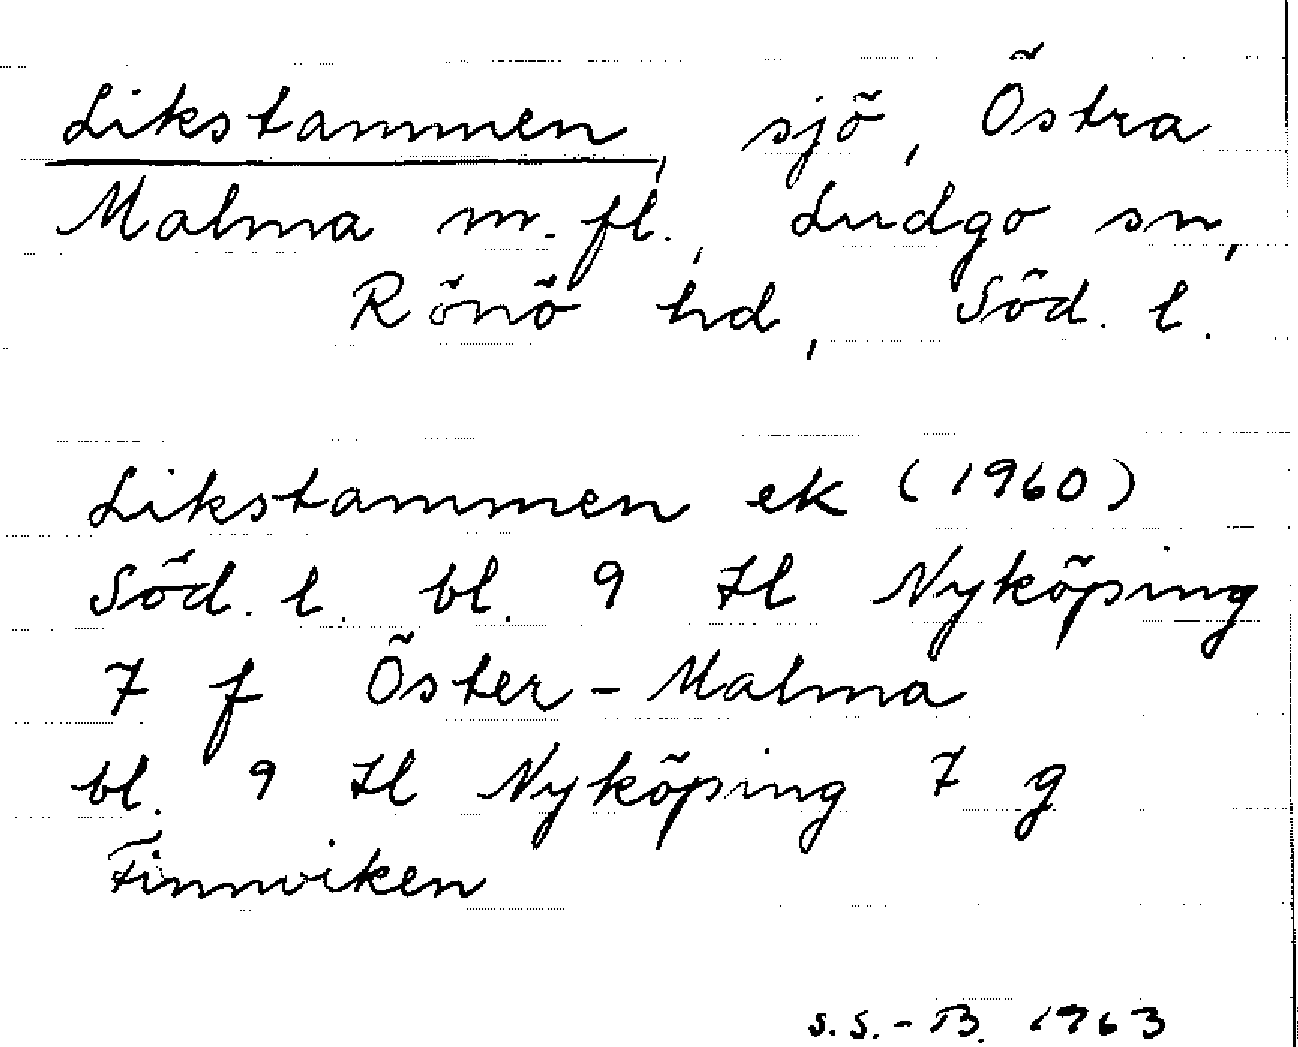 Likstammen, sjö, Östra
Malma m. fl., Ludgo sn,
Rönö hd, Söd. l.
Likstammen ek (1960)
Söd. l. bl. 9 H Nyköping
7 f Öster-Malma
bl. 9 H Nyköping 7 g
Finnviken
S.S.-B. 1963